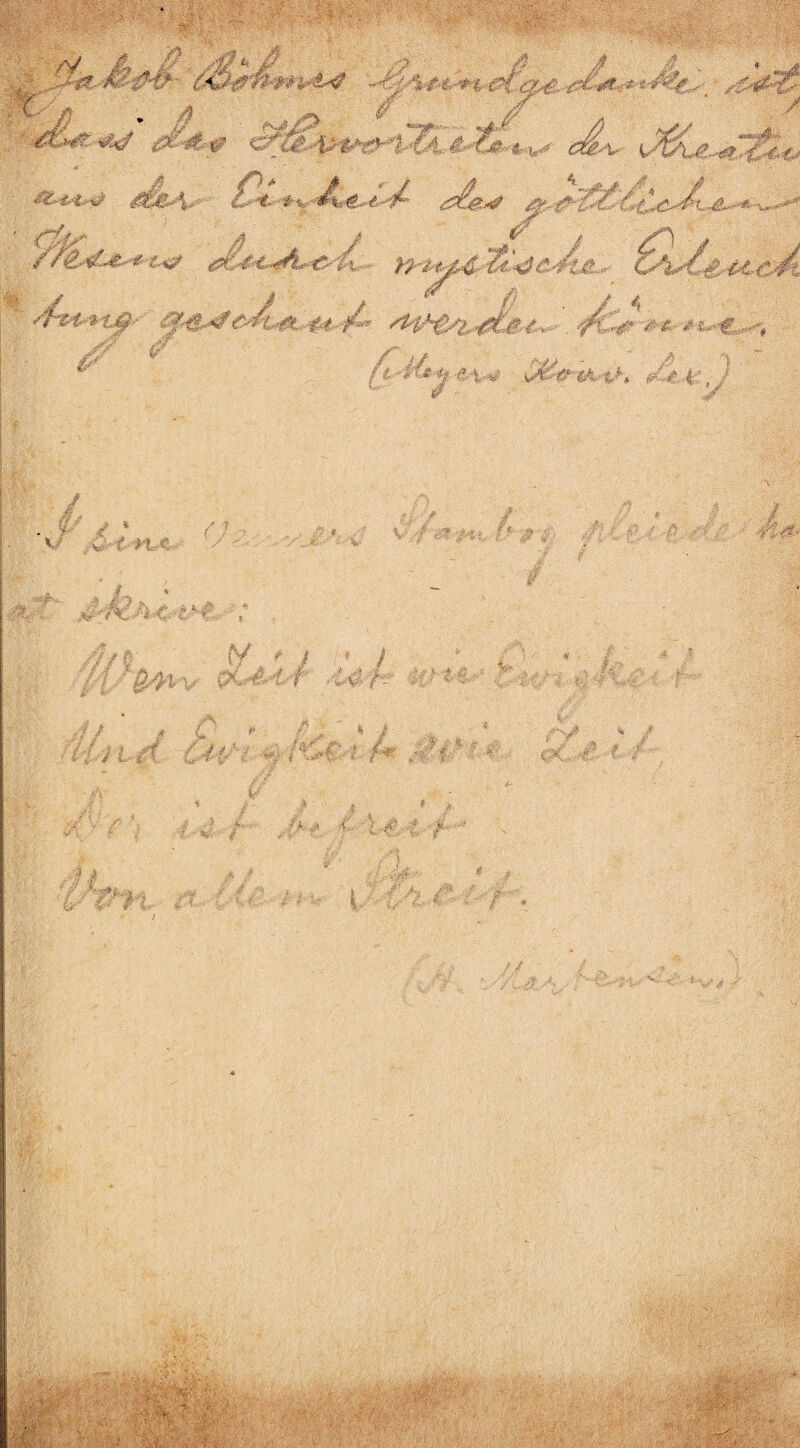 Jakob Böhmes Grundgedanke ist,
dass das Hervortreten der Kreatur
aus der Einheit des göttlichen
Wesens durch mystische Erleuch
tung geschaut werden könne.
(Meyers Konv. Lex.)
I sine Venners Stambog pleiede ha
at skrive:
Wem Zeit ist wie Ewigkeit
Und Ewigkeit wie Zeit
Der ist befreit
Von allem Streit.
(H. Martensen.)